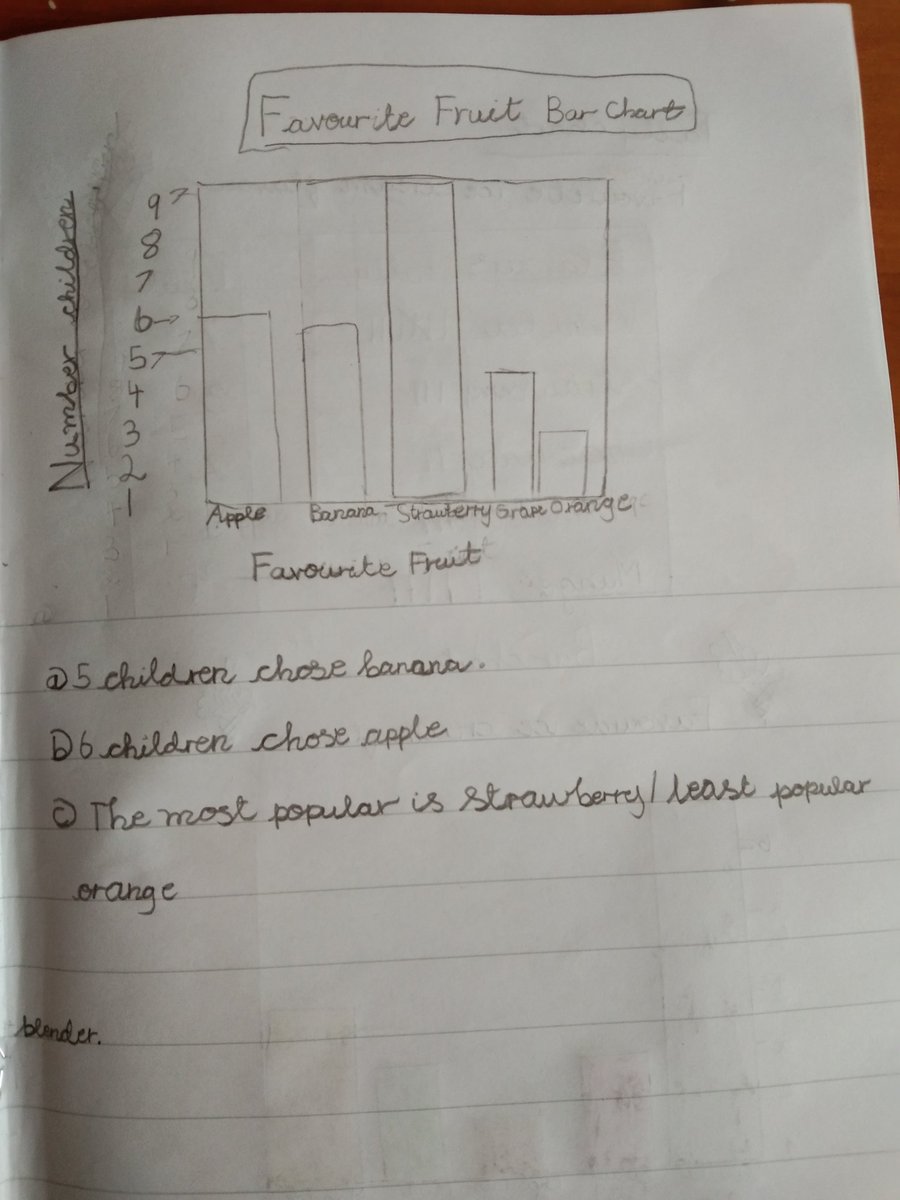 Favourite Fruit Bar Chart
Number children
9
8
7
6
5
4
3
2
1
Apple Banana Strawberry Grape Orange
Favourite Fruit
a) 5 children chose banana.
b) 6 children chose apple
c) The most popular is strawberry/least popular
orange
blender.